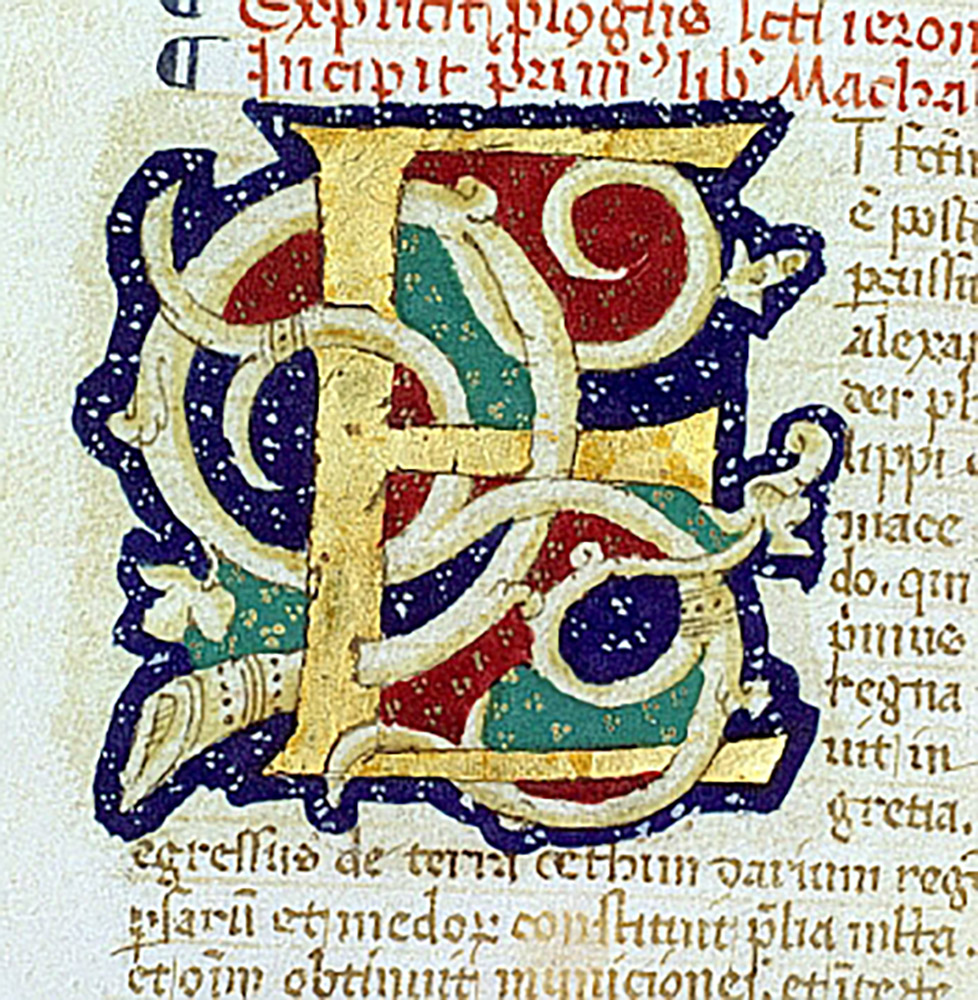 Explicit plogus scti ieron
Incipit prim⁹ lib⁹ Macha
E
T fctū
ē post
alexan
der ph
lippi
mace
do. qui
primus
regna
uit in
gretia.
egressus de terra cethim darium reg
psaru et medoꝝ constituit plia mlta.
et oīm obtinuit municiones. et